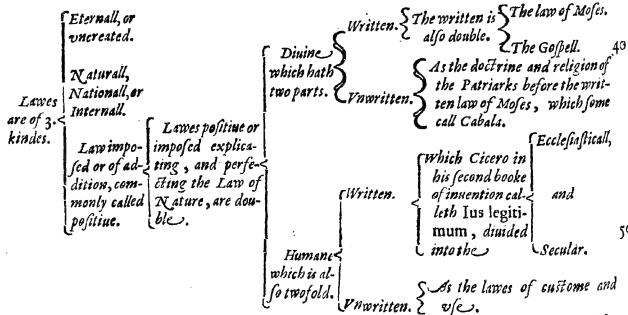 Lawes
are of 3.
kindes.
Eternall, or
vncreated.
Naturall,
Nationall, or
Internall.
Law impo-
sed or of ad-
dition, com-
monly called
positiue.
Lawes positiue or
imposed explica-
ting, and perfe-
cting the Law of
Nature, are dou-
ble.
Diuine
which hath
two parts.
Written.
The written is
also double.
The law of Moses.
The Gospell.
40
Vnwritten.
As the doctrine and religion of
the Patriarks before the writ-
ten law of Moses, which some
call Cabala.
Humane
which is al-
so twofold.
Written.
Which Cicero in
his second booke
of inuention cal-
leth Ius legiti-
mum, diuided
into the
Ecclesiasticall,
and
Secular.
Vnwritten.
As the lawes of custome and
vse.